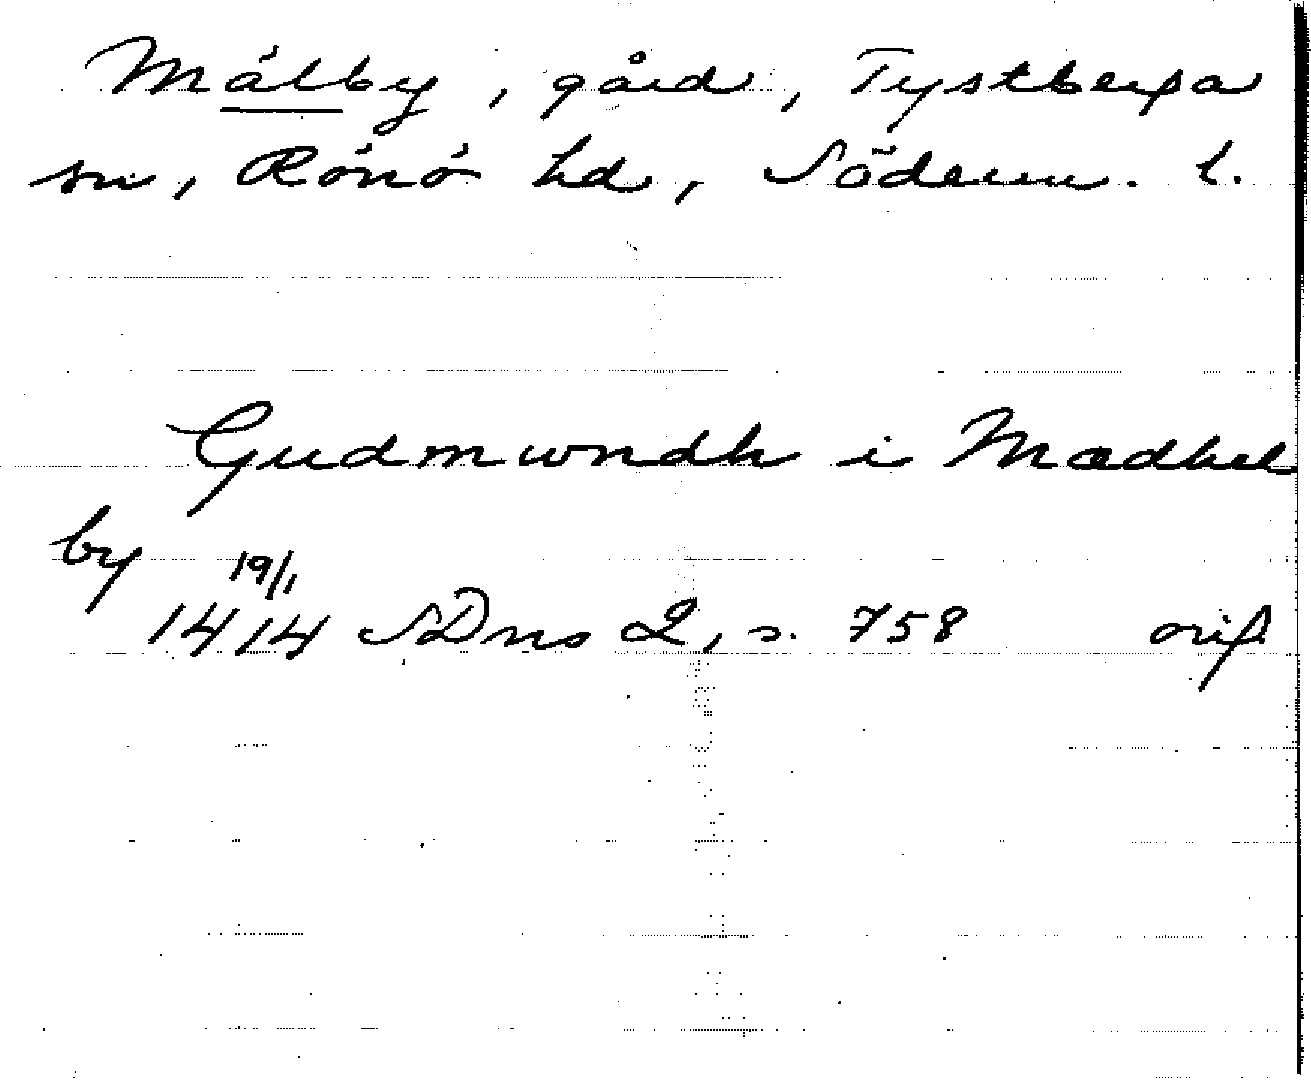 Målby, gård, Tystberga
sn, Rönö hd, Söderm. l.
Gudmwndh i Mædhel
by
19/1
1414 SDns 2, s. 758 orig